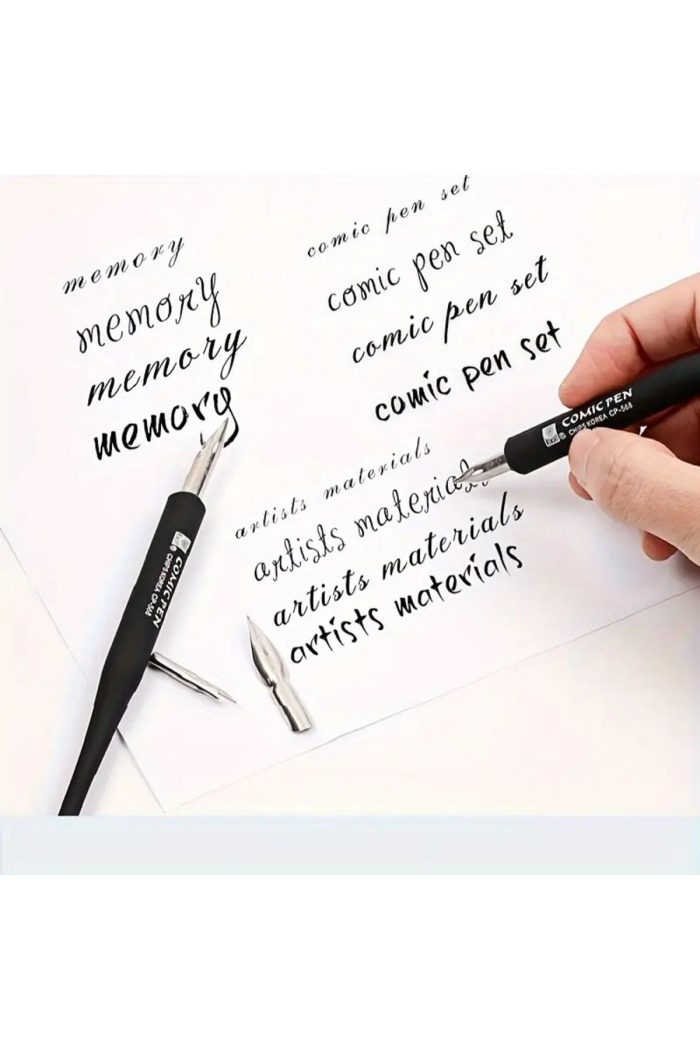 memory
memory
memory
memory
comic pen set
comic pen set
comic pen set
comic pen set
artists materials
artists materials
artists materials
artists materials
COMIC PEN
CHIPS KOREA CP-568
COMIC PEN
CHIPS KOREA CP-568